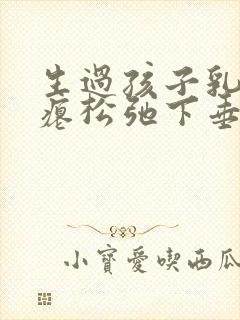 生過孩子乳
癟松弛下垂
小寶愛喫西瓜